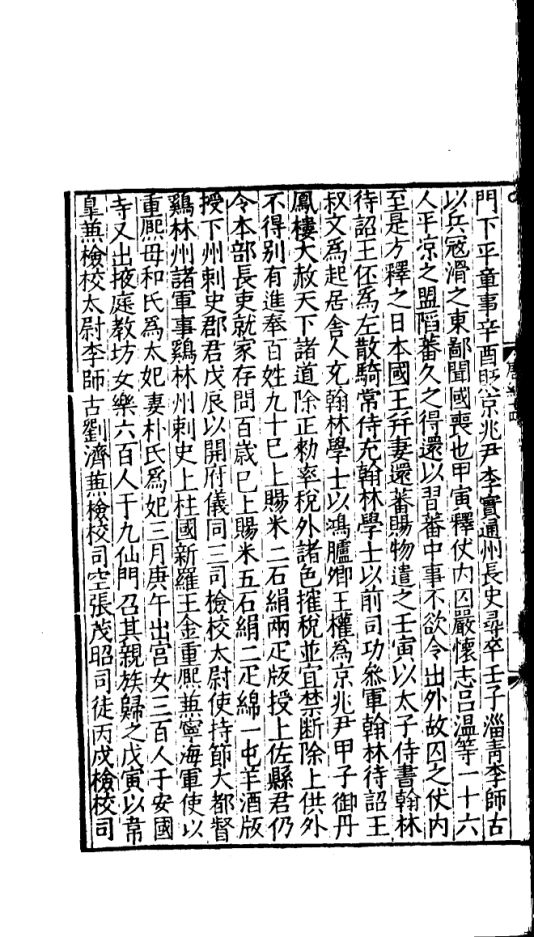 門下平章事辛酉貶京兆尹李實通州長史尋卒壬子淄靑李師古
以兵寇滑之東鄙聞國喪也甲寅釋仗内囚嚴懷志吕温等一十六
人平涼之盟陷蕃久之得還以習蕃中事不欲令出外故囚之仗内
至是方釋之日本國王并妻還蕃賜物遣之壬寅以太子侍書翰林
待詔王伾爲左散騎常侍充翰林學士以前司功叅軍翰林待詔王
叔文爲起居舍人充翰林學士以鴻臚卿王權爲京兆尹甲子御丹
鳳樓大赦天下諸道除正勑率稅外諸色搉稅並宜禁斷除上供外
不得别有進奉百姓九十已上賜米二石絹兩疋版授上佐縣君仍
令本部長吏就家存問百歲已上賜米五石絹二疋綿一屯羊酒版
授下州刺史郡君戊辰以開府儀同三司檢校太尉使持節大都督
鷄林州諸軍事鷄林州刺史上柱國新羅王金重熈兼寧海軍使以
重熈母和氏爲太妃妻朴氏爲妃三月庚午出宫女三百人于安國
寺又出掖庭教坊女樂六百人于九仙門召其親族歸之戊寅以韋
臯兼檢校太尉李師古劉濟兼檢校司空張茂昭司徒丙戍檢校司